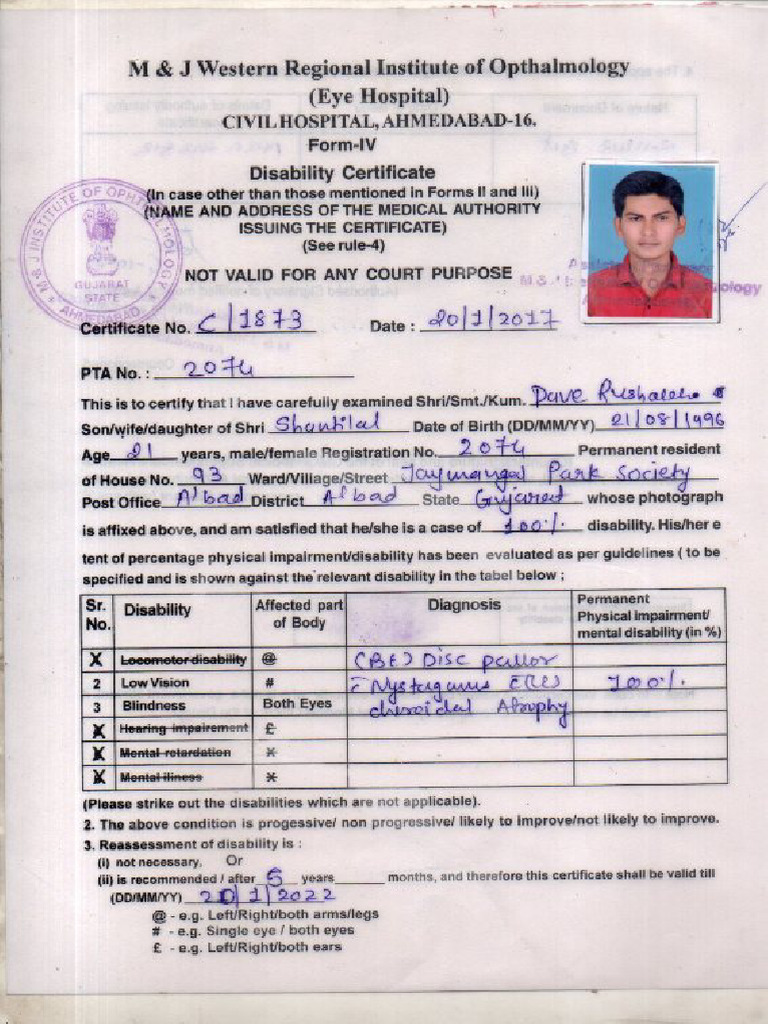 M & J Western Regional Institute of Opthalmology
(Eye Hospital)
CIVIL HOSPITAL, AHMEDABAD-16.
Form-IV
Disability Certificate
(In case other than those mentioned in Forms II and III)
(NAME AND ADDRESS OF THE MEDICAL AUTHORITY
ISSUING THE CERTIFICATE)
(See rule-4)
NOT VALID FOR ANY COURT PURPOSE
M & J INSTITUTE OF OPHTHALMOLOGY
GUJARAT
STATE
AHMEDABAD
Certificate No. C/1873 Date : 20/1/2017
PTA No. : 2074
This is to certify that I have carefully examined Shri/Smt./Kum. Dave
Son/wife/daughter of Shri Shantilal Date of Birth (DD/MM/YY) 21/08/1996
Age 21 years, male/female Registration No. 2074 Permanent resident
of House No. 93 Ward/Village/Street Jaymangal Park Society
Post Office A'bad District A'bad State Gujarat whose photograph
is affixed above, and am satisfied that he/she is a case of 100% disability. His/her e
tent of percentage physical impairment/disability has been evaluated as per guidelines ( to be
specified and is shown against the relevant disability in the tabel below ;
Sr. No. Disability Affected part of Body Diagnosis Permanent Physical impairment/ mental disability (in %)
X Locomotor disability @ (BE) Disc pallor
2 Low Vision # Nystagmus 100%
3 Blindness Both Eyes choroidal Atrophy
X Hearing impairement £
X Mental retardation X
X Mental iliness X
(Please strike out the disabilities which are not applicable).
2. The above condition is progessive/ non progressive/ likely to improve/not likely to improve.
3. Reassessment of disability is :
(i) not necessary, Or
(ii) is recommended / after 5 years months, and therefore this certificate shall be valid till
(DD/MM/YY) 20/1/2022
@ - e.g. Left/Right/both arms/legs
# - e.g. Single eye / both eyes
£ - e.g. Left/Right/both ears